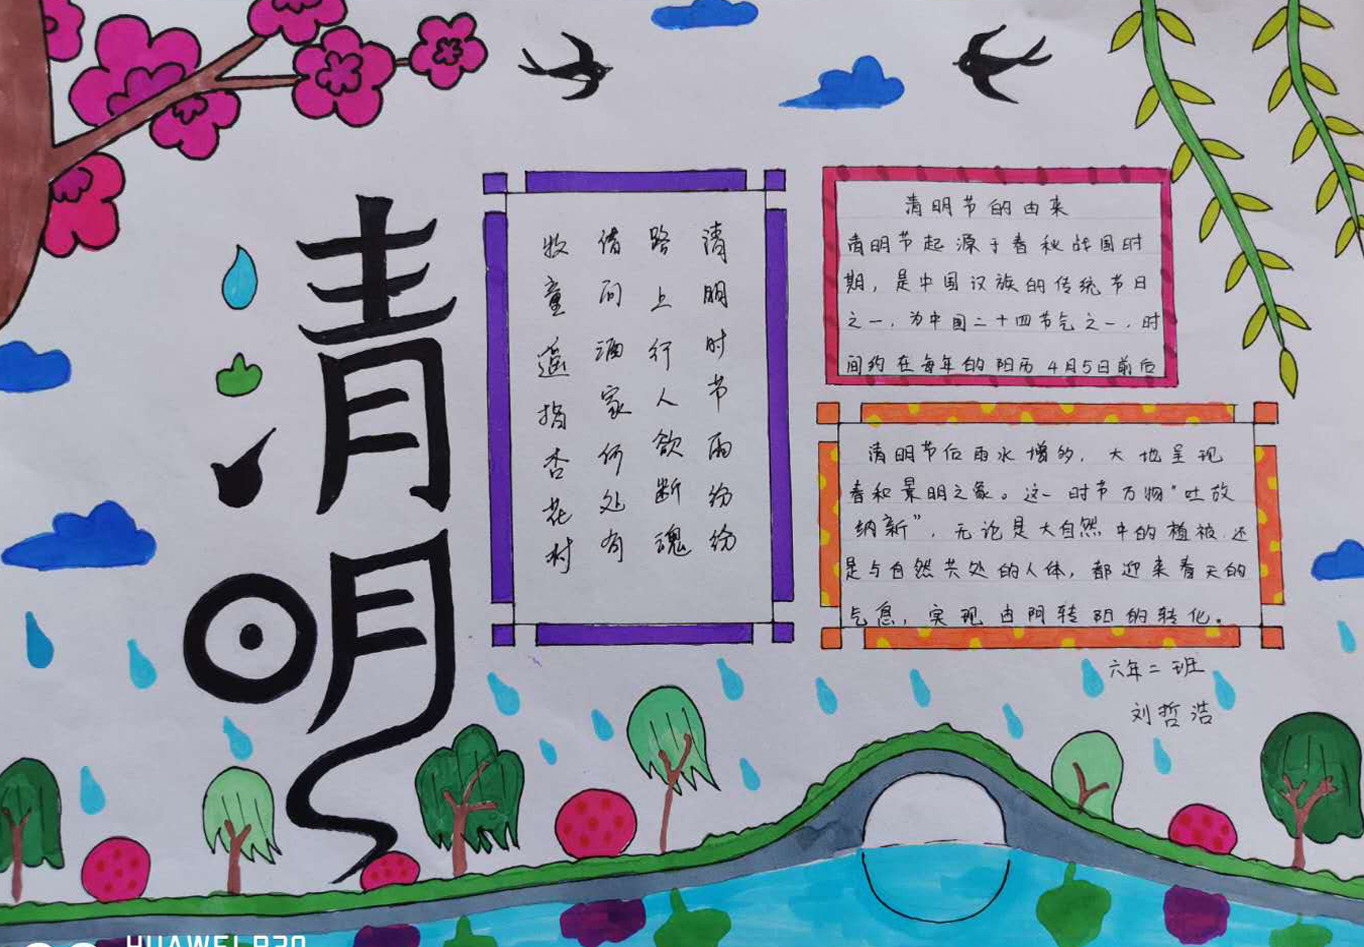 清明
清明时节雨纷纷
路上行人欲断魂
借问酒家何处有
牧童遥指杏花村
清明节的由来
清明节起源于春秋战国时
期，是中国汉族的传统节日
之一，为中国二十四节气之一，时
间约在每年的阳历4月5日前后
清明节后雨水增多，大地呈现
春和景明之象。这一时节万物“吐故
纳新”，无论是大自然中的植被，还
是与自然共处的人体，都迎来春天的
气息，实现由阴转阳的转化。
六年二班
刘哲浩
HUAWEI P30